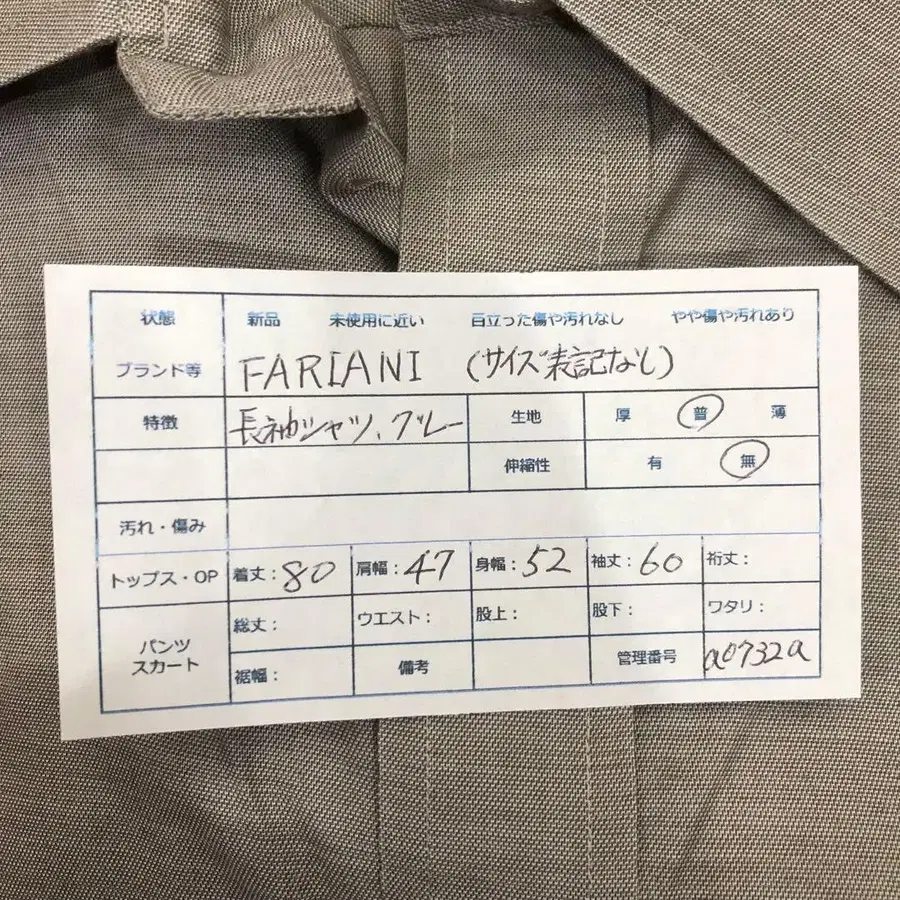 状態 新品 未使用に近い 目立った傷や汚れなし やや傷や汚れあり
ブランド等 FARIANI (サイズ表記なし)
特徴 長袖シャツ、グレー 生地 厚 普 薄
伸縮性 有 無
汚れ・傷み
トップス・OP 着丈:80 肩幅:47 身幅:52 袖丈:60 裄丈:
パンツ スカート 総丈: ウエスト: 股上: 股下: ワタリ:
裾幅: 備考 管理番号 a0732a